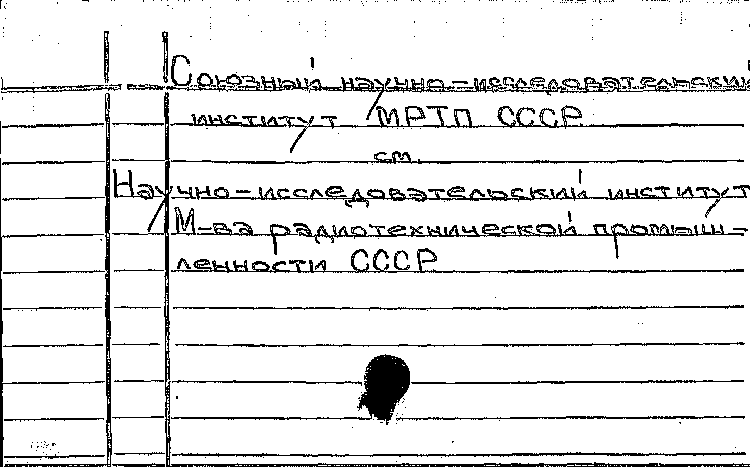 Союзный научно-исследовательский
институт МРТП СССР
см.
Научно-исследовательский институт
М-ва радиотехнической промыш-
ленности СССР